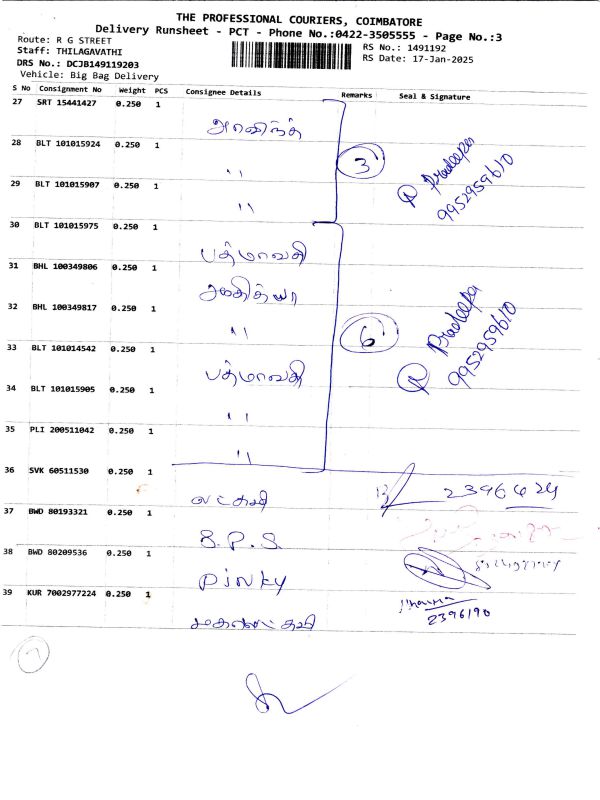 THE PROFESSIONAL COURIERS, COIMBATORE
Delivery Runsheet - PCT - Phone No.:0422-3505555 - Page No.:3
Route: R G STREET
Staff: THILAGAVATHI
DRS No.: DCJB149119203
Vehicle: Big Bag Delivery
RS No.: 1491192
RS Date: 17-Jan-2025
S No Consignment No Weight PCS Consignee Details Remarks Seal & Signature
27 SRT 15441427 0.250 1
அரவிந்த்
28 BLT 101015924 0.250 1
" 3 Pradeepa
29 BLT 101015907 0.250 1 9952959610
"
30 BLT 101015975 0.250 1
பத்மாவதி
31 BHL 100349806 0.250 1
32 BHL 100349817 0.250 1
" 6 Pradeepa
33 BLT 101014542 0.250 1 9952959610
பத்மாவதி
34 BLT 101015905 0.250 1
"
35 PLI 200511042 0.250 1
"
36 SVK 60511530 0.250 1
2396424
37 BWD 80193321 0.250 1
S.P.S
38 BWD 80209536 0.250 1
Pinky
39 KUR 7002977224 0.250 1
2396190